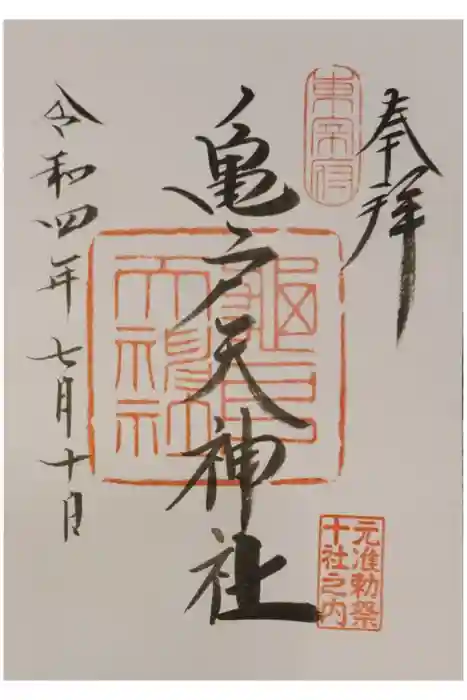 奉拝
東宰府
亀戸天神社
龜戸天神社
元准勅祭
十社之内
令和四年七月十日